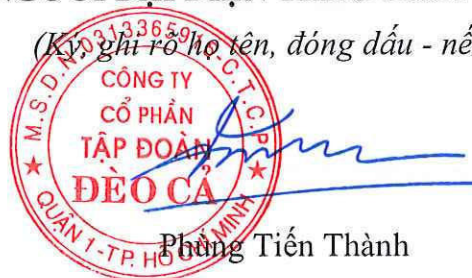 (Ký, ghi rõ họ tên, đóng dấu - nế
M.S.D.N:03133659 -C.T.C.P
CÔNG TY
CỔ PHẦN
TẬP ĐOÀN
ĐÈO CẢ
QUẬN 1-TP. HỒ CHÍ MINH
Phùng Tiến Thành